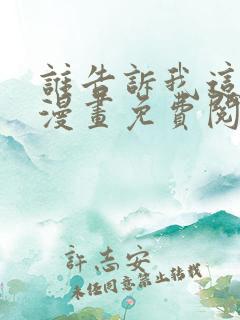 誰告訴我這
漫畫免費閱
許志安
未經同意禁止轉載